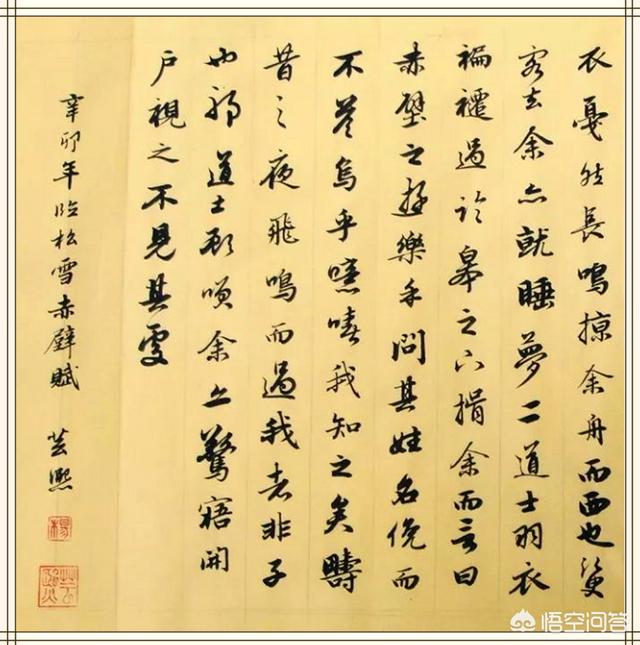 衣戛然長鳴掠余舟而西也
客去余亦就睡夢二道士羽衣
褊過臨皋之下揖余而言曰
赤壁之遊樂乎問其姓名俛而
不答烏乎噫嘻我知之矣疇
昔之夜飛鳴而過我者非子
也耶道士顧笑余亦驚寤開
戶視之不見其處
辛卯年臨松雪赤壁賦 芸熙
楊
悟空问答